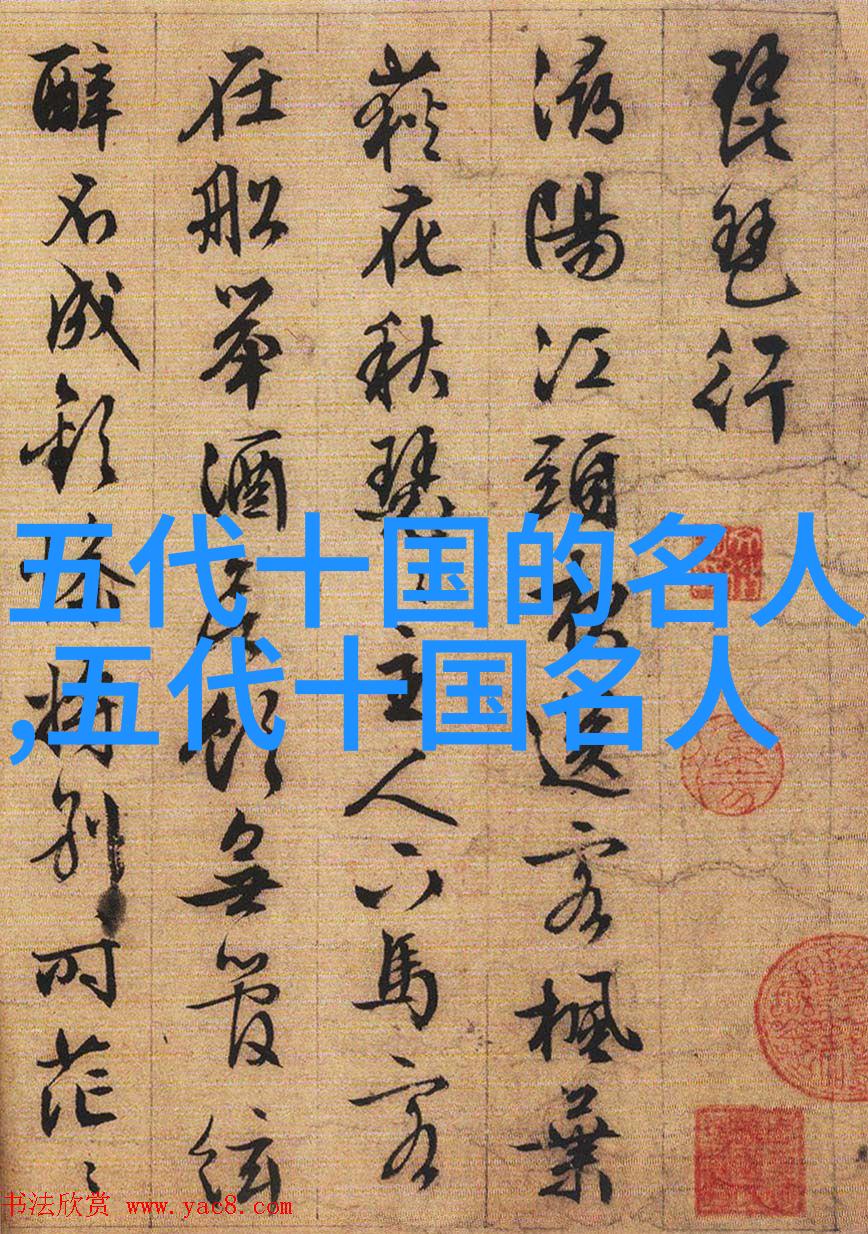 琵琶行
潯陽江頭夜送客楓葉
荻花秋瑟〻主人下馬客
在船舉酒欲飲無管絃
醉不成歡慘將別〻時茫〻
五代十国的名人
,五代十国名人
书法欣赏 www.yac8.com